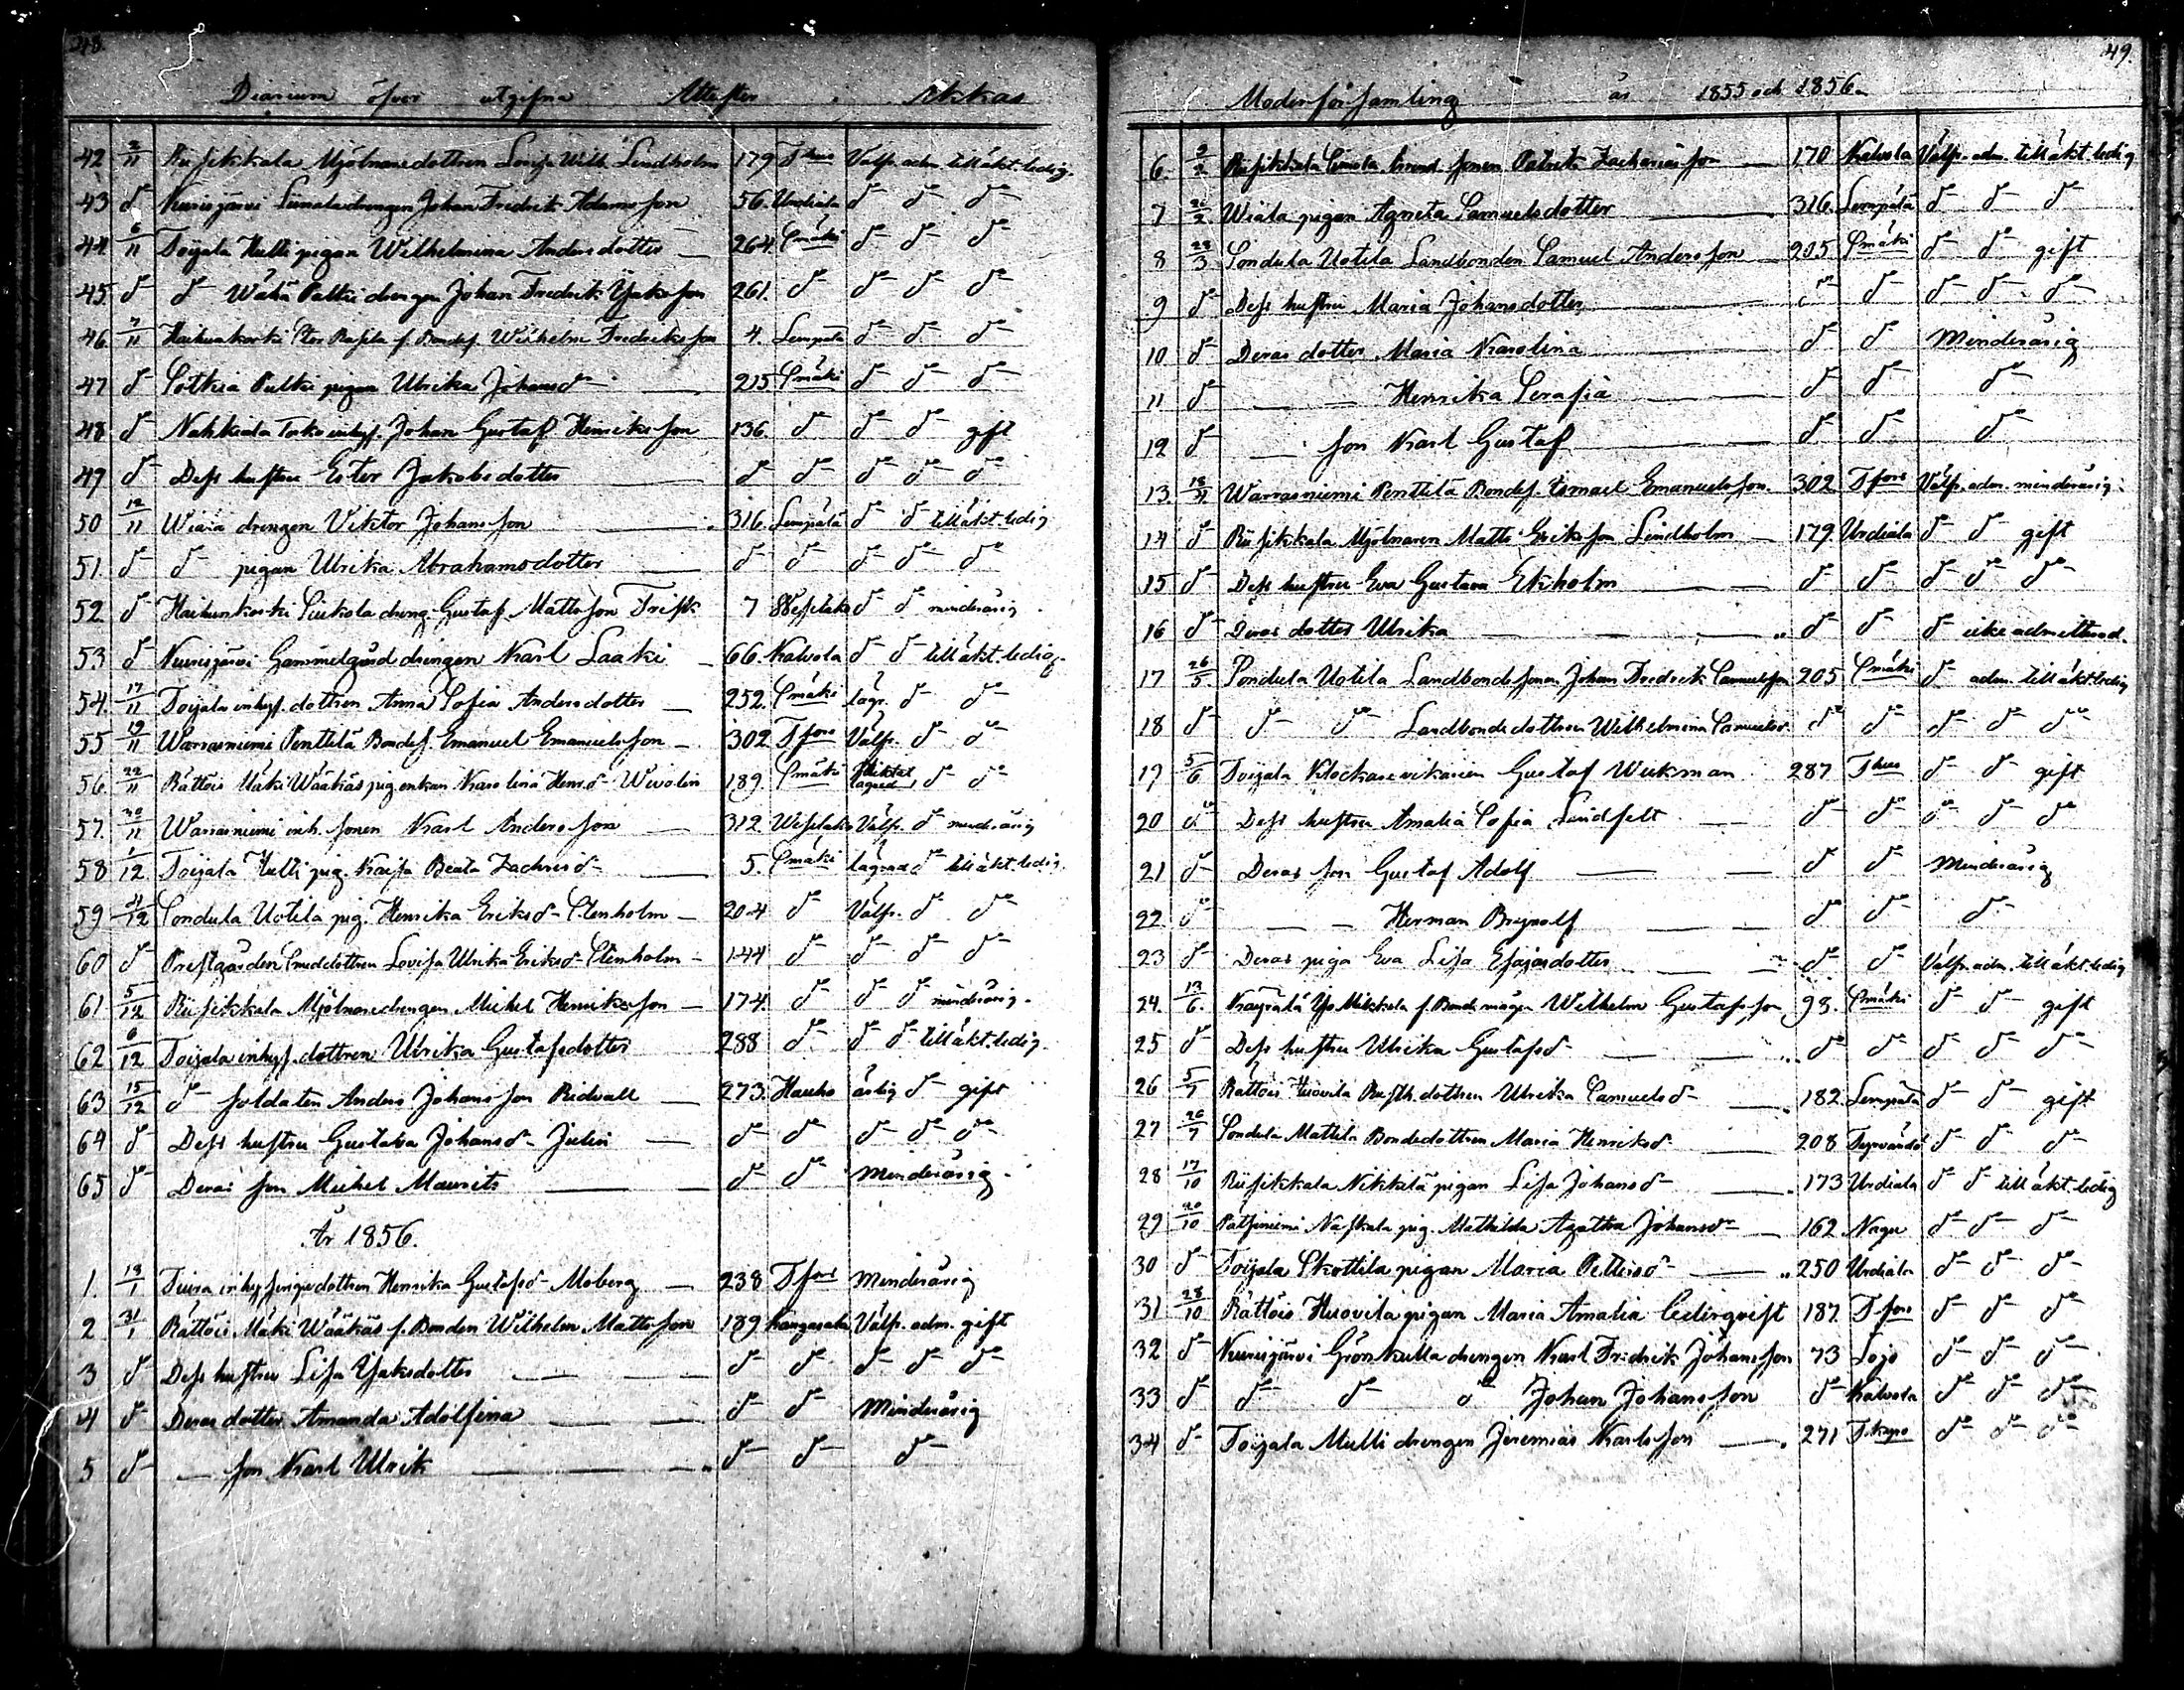 48.
Diarium öfver utgifna Attester Akkas
42 2/11 Riisikkala Mjölnaredottren Lovisa Wilh. Lindholm 179 Thus Välfr. adm. till äkt. ledig.
43 do Kurisjärvi Uotila drengen Johan Fredrik Adamsson 56. Urdiala do do do
44 6/11 Toijala Hulli pigan Wilhelmina Andersdotter 264. Smäki do do do
45 do do Wähä Paltti drengen Johan Fredrik Isaksson 261. do do do do
46. 7/11 Haihunkoski Stor f. Bondes. Wilhelm Fredriksson 4. Lempälä do do do
47 do Sotkia Pultti pigan Ulrika Johansdo 215 Smäki do do do
48 do Nahkiala inhys. Johan Gustaf Henriksson 136. do do do gift
49 do Dess hustru Ester Jakobsdotter do do do do do
50 12/11 Wiala drengen Viktor Johansson 316. Lempälä do do till äkt. ledig
51. do do pigan Ulrika Abrahamsdotter do do do do do
52 do Haihunkoski dreng. Gustaf Mattsson Frisk 7 Wesilaks do do minderårig
53 do Kurisjärvi Gammelgård drengen Karl Laaki 66. Kalvola do do till äkt. ledig
54. 17/11 Toijala inhys. dottren Anna Sofia Andersdotter 252. Smäki do do
55 19/11 Warrasniemi Penttilä Bondes. Emanuel Emanuelsson 302 Tfors Välfr. do do
56. 22/11 Rättöis Mäki Wääkäs pig. enkan Karolina Henrsdo Wivolin 189. Smäki do do
57. 30/11 Warrasniemi inh. sonen Karl Andersson 312. Wesilaks Välfr. do minderårig
58 1/12. Toijala Hulli pig. Kajsa Beata Zachrisdo 5. Smäki lagrad do till äkt. ledig.
59 /12 Sondula Uotila pig. Henrika Eriksdo Stenholm 204 do Välfr. do do
60 do Prestgården Smeddottren Lovisa Ulrika Eriksdo Stenholm 144 do do do do
61 5/12 Riisikkala Mjölnaredrengen Mickel Henriksson 174. do do do minderårig.
62 6/12 Toijala inhys. dottren Ulrika Gustafsdotter 288 do do do till äkt. ledig.
63 15/12 do soldaten Anders Johansson Ridvall 273. Hauho ärlig do gift
64 do Dess hustru Gustava Johansdo Julin do do do do do
65 do Deras son Mickel Maurits do do Minderårig
År 1856.
1. 13/1 inhys dottren Henrika Gustafsdo Moberg 238 Tfors Minderårig
2 31/1 Rättöis Mäki Wääkäs f. Bonden Wilhelm Mattsson 189 Kangasala Välfr. adm. gift
3 do Dess hustru Lisa Isaksdotter do do do do do
4 do Deras dotter Amanda Adolfina do do Minderårig
5 do son Karl Ulrik do do do
49.
Moderförsamling år 1855 och 1856
6. /2 Riisikkala sonen Patrik Zachariasson 170 Kalvola Välfr. adm. till äkt. ledig
7 /2 Wiala pigan Agneta Samuelsdotter 316. Lempälä do do do
8 /3 Sondula Uotila Landbonden Samuel Andersson 205 Smäki do do gift
9 do Dess hustru Maria Johansdotter do do do do do
10 do Deras dotter Maria Karolina do do Minderårig
11 do Henrika Serafia do do do
12 do son Karl Gustaf do do do
13. Warrasniemi Penttilä Bondes. Ismael Emanuelsson 302 Tfors Välfr. adm. minderårig.
14 do Riisikkala Mjölnaren Matts Eriksson Lindholm 179 Urdiala do do gift
15 do Dess hustru Eva Gustava Ekholm do do do do do
16 do Deras dotter Ulrika do do do icke admitterad.
17 26/5 Sondula Uotila Landbondesonen Johan Fredrik Samuelsson 205 Smäki do adm. till äkt. ledig
18 do do do Landbondedottren Wilhelmina Samuelsd. do do do do do
19 5/6 Toijala Klockarevikarien Gustaf Wickman 287 Thus do do gift
20 do Dess hustru Amalia Sofia Lindfelt do do do do do
21 do Deras son Gustaf Adolf do do Minderårig
22. do Herman Brynolf do do do
23 do Deras piga Eva Lisa Esajasdotter do do Välfr. adm. till äkt. ledig
24. 13/6. Mikkola f. Bonde mågen Wilhelm Gustafsson 93. Smäki do do gift
25 do Dess hustru Ulrika Gustafsdo do do do do do
26 5/7 Rättöis Huovila Rusth. dottren Ulrika Samuelsdo 182. Lempälä do do gift
27 26/7 Sondula Mattila Bondedottren Maria Henriksdo 208 Tyrvändö do do do
28 17/10 Riisikkala Nikkilä pigan Lisa Johansdo 173 Urdiala do do till äkt. ledig
29 20/10 Pätsiniemi pig. Mathilda Agatha Johansdo 162 Nagu do do do
30 do Toijala Skottila pigan Maria Pettersdo 250 Urdiala do do do
31 28/10 Rättöis Huovila pigan Maria Amalia Cedirqvist 187 Tfors do do do
32 do Kurisjärvi Grönkulla drengen Karl Fredrik Johansson 73 Lojo do do do
33 do do do do Johan Johansson do Kalvola do do do
34 do Toijala Mulli drengen Jeremias Karlsson 271 do do do